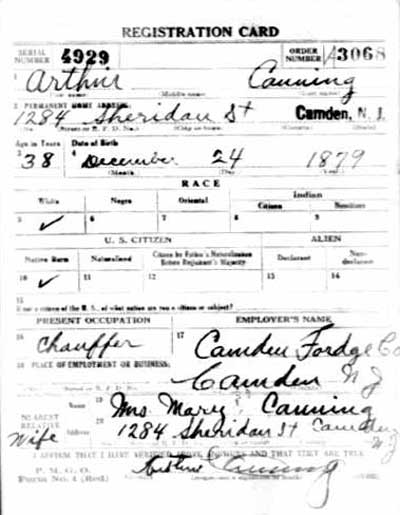 REGISTRATION CARD
SERIAL NUMBER 4929 ORDER NUMBER A3068
1 Arthur Canning
(Middle name)
2 PERMANENT HOME ADDRESS:
1284 Sheridan St Camden, N. J.
Age in Years Date of Birth
3 38 4 December 24 1879
RACE
White Negro Oriental Indian
Citizen
5 ✓ 6 7 8 9
U. S. CITIZEN ALIEN
Native Born Naturalized Citizen by Father's Naturalization Before Registrant's Majority Declarant Non-declarant
10 ✓ 11 12 13 14
15
If not a citizen of the U. S., of what nation are you a citizen or subject?
PRESENT OCCUPATION EMPLOYER'S NAME
16 Chauffer 17 Camden Fordge Co
18 PLACE OF EMPLOYMENT OR BUSINESS:
Camden NJ
NEAREST RELATIVE 19 Mrs. Mary Canning
Wife 20 1284 Sheridan St Camden NJ
I AFFIRM THAT I HAVE VERIFIED ABOVE ANSWERS AND THAT THEY ARE TRUE
P. M. G. O.
Form No. 1 (Red) Arthur Canning